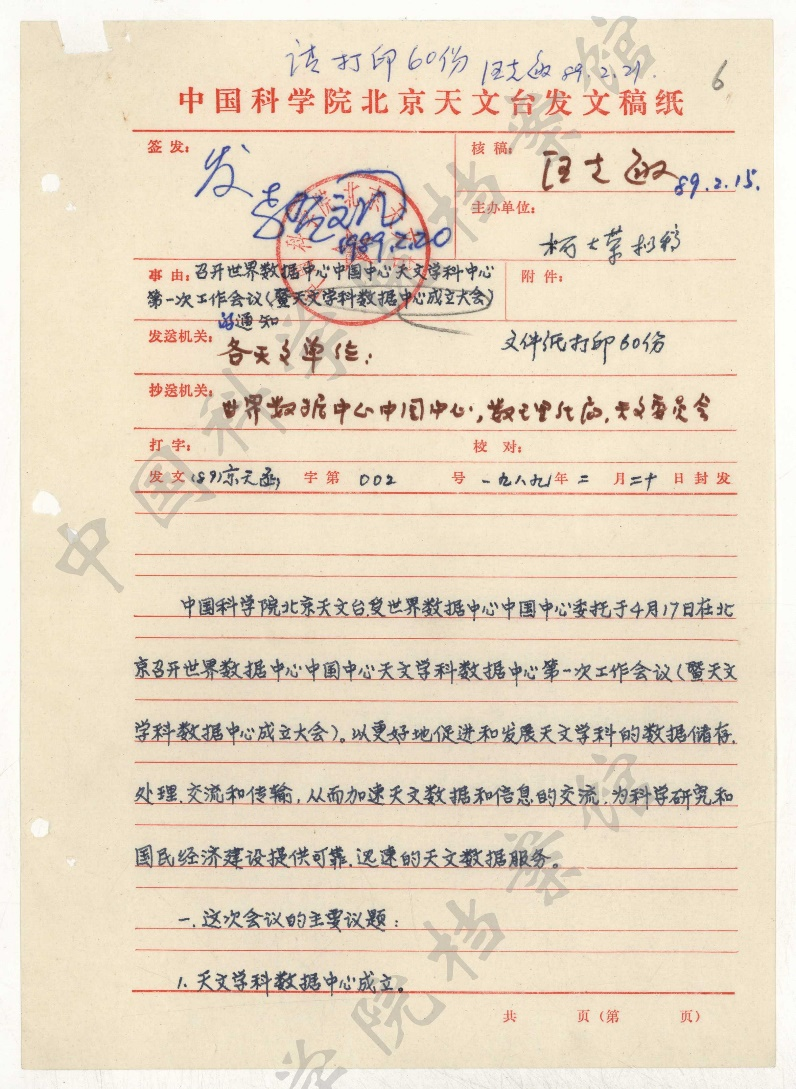 请打印60份 汪克敏 89.2.21.
6
中国科学院北京天文台发文稿纸
签发:
发
1989.2.20
核稿:
汪克敏 89.2.15.
主办单位:
拟稿
事由:召开世界数据中心中国中心天文学科中心
第一次工作会议(暨天文学科数据中心成立大会)
的通知
附件:
发送机关:
各天文单位:
文件纸打印60份
抄送机关:
世界数据中心中国中心,数理化局,天文委员会
打字:
校对:
发文(89)京天函字第002号 一九八九年二月二十日封发
中国科学院北京天文台,受世界数据中心中国中心委托于4月17日在北
京召开世界数据中心中国中心天文学科数据中心第一次工作会议(暨天文
学科数据中心成立大会)。以更好地促进和发展天文学科的数据储存.
处理.交流和传输,从而加速天文数据和信息的交流.为科学研究和
国民经济建设提供可靠.迅速的天文数据服务。
一.这次会议的主要议题:
1.天文学科数据中心成立。
共 页(第 页)
中国科学院档案馆
学院档案馆